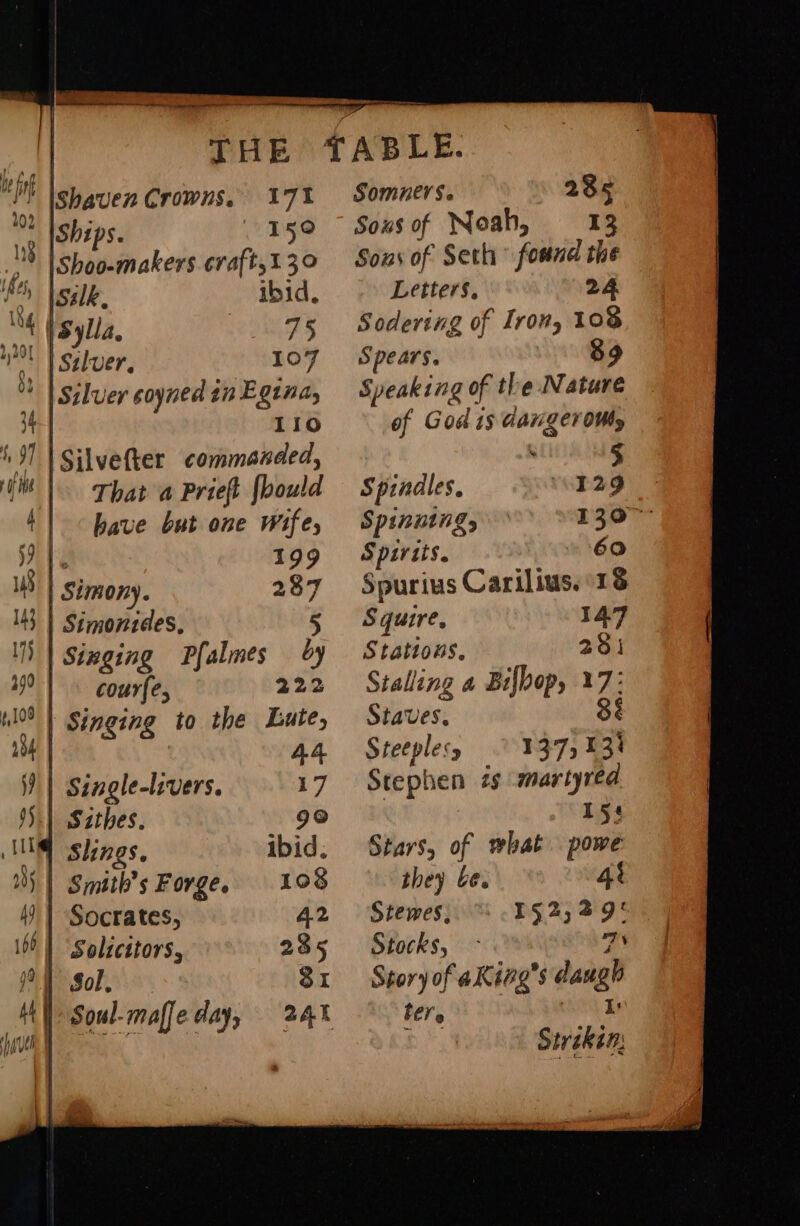 THE TABLE.
Shaven Crowns. 171
Ships. 150
Shoo-makers craft, 130
Silk, ibid.
Sylla, 75
Silver, 107
Silver coyned in Egina,
110
Silveſter commanded,
That a Prieſt ſhould
have but one Wife,
199
Simony. 287
Simonides, 5
Singing Pſalmes by
courſe, 222
Singing to the Lute,
44
Single-livers. 17
Sithes. 90
Slings. ibid.
Smith's Forge. 108
Socrates, 42
Solicitors, 285
Sol. 81
Soul-maſſe day, 241
Somners. 285
Sons of Noah, 13
Sons of Seth found the
Letters, 24
Sodering of Iron, 108
Spears. 89
Speaking of the Nature
of God is dangerous,
5
Spindles. 129
Spinning, 130
Spirits. 60
Spurius Carilius. 18
Squire, 147
Stations, 281
Stalling a Biſhop, 17
Staves.
Steeples, 137, 131
Stephen is martyred
15
Stars, of what powe
they be. 4
Stewes, 152, 29
Stocks, 7
Story of a King's daugh
ter,
Strikin